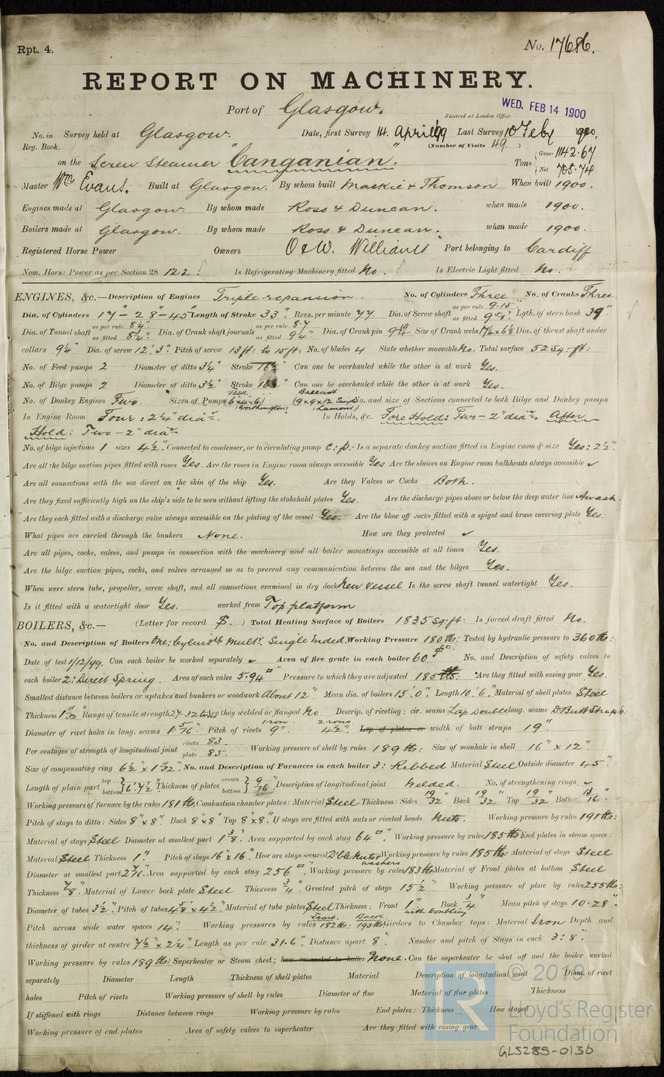 Rpt. 4.
No. 17686.
REPORT ON MACHINERY.
Port of Glasgow.
Received at London Office WED. FEB 14 1900
No. in Survey held at Glasgow. Date, first Survey 14 April 99 Last Survey 10 Feby 1900.
Reg. Book. (Number of Visits 49)
on the Screw Steamer "Canganian". Tons { Gross 1142.67 Net 705.74
Master Wm Evans. Built at Glasgow. By whom built Mackie & Thomson When built 1900.
Engines made at Glasgow By whom made Ross & Duncan. when made 1900.
Boilers made at Glasgow By whom made Ross & Duncan. when made 1900.
Registered Horse Power Owners O & W. Williams Port belonging to Cardiff
Nom. Horse Power as per Section 28 122. Is Refrigerating Machinery fitted No. Is Electric Light fitted No.
ENGINES, &c.—Description of Engines Triple expansion. No. of Cylinders Three No. of Cranks Three
Dia. of Cylinders 17"-28"-45" Length of Stroke 33" Revs. per minute 77 Dia. of Screw shaft as per rule 9.15" as fitted Lgth. of stern bush 39"
Dia. of Tunnel shaft as per rule as fitted Dia. of Crank shaft journals as per rule 8.7 as fitted 9¼" Dia. of Crank pin Size of Crank webs Dia. of thrust shaft under
collars 9¼" Dia. of screw 12'.3" Pitch of screw 13 ft: to 15 ft: No. of blades 4 State whether moveable No. Total surface 52 sq: ft:
No. of Feed pumps 2 Diameter of ditto 3¼" Stroke Can one be overhauled while the other is at work Yes.
No. of Bilge pumps 2 Diameter of ditto 3½" Stroke Can one be overhauled while the other is at work Yes.
No. of Donkey Engines Two. Sizes of Pumps Feed (6x4x6) (Worthington) Ballast (9x9x12 Lamont) No. and size of Suctions connected to both Bilge and Donkey pumps
In Engine Room Four: 2¼" dia. In Holds, &c. Fore Hold: Two-2" dia. After
Hold: Two-2" dia.
No. of bilge injections 1 sizes 4½" Connected to condenser, or to circulating pump C.P. Is a separate donkey suction fitted in Engine room & size Yes: 2½"
Are all the bilge suction pipes fitted with roses Yes. Are the roses in Engine room always accessible Yes Are the sluices on Engine room bulkheads always accessible ✓
Are all connections with the sea direct on the skin of the ship Yes. Are they Valves or Cocks Both.
Are they fixed sufficiently high on the ship's side to be seen without lifting the stokehold plates Yes. Are the discharge pipes above or below the deep water line Awash
Are they each fitted with a discharge valve always accessible on the plating of the vessel Yes. Are the blow off cocks fitted with a spigot and brass covering plate Yes
What pipes are carried through the bunkers None. How are they protected ✓
Are all pipes, cocks, valves, and pumps in connection with the machinery and all boiler mountings accessible at all times Yes.
Are the bilge suction pipes, cocks, and valves arranged so as to prevent any communication between the sea and the bilges Yes.
When were stern tube, propeller, screw shaft, and all connections examined in dry dock New Vessel Is the screw shaft tunnel watertight Yes.
Is it fitted with a watertight door Yes. worked from Top platform
BOILERS, &c.— (Letter for record S.) Total Heating Surface of Boilers 1835 sq: ft: Is forced draft fitted No.
No. and Description of Boilers One: Cylin: Mult: Single Ended. Working Pressure 180 lb: Tested by hydraulic pressure to 360 lb:
Date of test 1/12/99. Can each boiler be worked separately ✓ Area of fire grate in each boiler 60 No. and Description of safety valves to
each boiler 2: Direct Spring. Area of each valve 5.94" Pressure to which they are adjusted 185 lb. Are they fitted with easing gear Yes.
Smallest distance between boilers or uptakes and bunkers or woodwork About 12" Mean dia. of boilers 15'.0" Length 10'.6" Material of shell plates Steel
Thickness 1 1/32" Range of tensile strength 27-32 tons Are they welded or flanged No Descrip. of riveting: cir. seams Lap Double long. seams D. Butt Straps
Diameter of rivet holes in long. seams 1 5/16" Pitch of rivets 9" 4½" Lap of plates or width of butt straps 19"
Per centages of strength of longitudinal joint rivets 83. plate 85. Working pressure of shell by rules 189 lb: Size of manhole in shell 16" x 12"
Size of compensating ring 6½ x 1 1/32" No. and Description of Furnaces in each boiler 3: Ribbed Material Steel Outside diameter 45"
Length of plain part top bottom Thickness of plates crown bottom 9/16" Description of longitudinal joint Welded. No. of strengthening rings ✓
Working pressure of furnace by the rules 181 lb: Combustion chamber plates: Material Steel Thickness: Sides 19/32 Back 19/32 Top 19/32 Bottom
Pitch of stays to ditto: Sides 8" x 8" Back 8" x 8" Top 8" x 8" If stays are fitted with nuts or riveted heads Nuts. Working pressure by rules 191 lb:
Material of stays Steel Diameter at smallest part 1 3/8" Area supported by each stay 64" Working pressure by rules 185 lb: End plates in steam space:
Material Steel Thickness 1" Pitch of stays 16" x 16" How are stays secured Dble nuts & washers Working pressure by rules 185 lb: Material of stays Steel
Diameter at smallest part Area supported by each stay 256" Working pressure by rules 183 lb: Material of Front plates at bottom Steel
Thickness 7/8" Material of Lower back plate Steel Thickness 3/4" Greatest pitch of stays 15½" Working pressure of plate by rules 255 lb:
Diameter of tubes 3½" Pitch of tubes 4 5/8 x 4½" Material of tube plates Steel Thickness: Front 1" Back 3/4" Mean pitch of stays 10.28"
Pitch across wide water spaces 14" Working pressures by rules Front 182 lb: Back 195 lb: Girders to Chamber tops: Material Iron Depth and
thickness of girder at centre 7½" x 2¼" Length as per rule 31.6" Distance apart 8" Number and pitch of Stays in each 3: 8"
Working pressure by rules 189 lb: Superheater or Steam chest; how connected to boiler None. Can the superheater be shut off and the boiler worked
separately Diameter Length Thickness of shell plates Material Description of longitudinal joint Diam. of rivet
holes Pitch of rivets Working pressure of shell by rules Diameter of flue Material of flue plates Thickness
If stiffened with rings Distance between rings Working pressure by rules End plates: Thickness How stayed
Working pressure of end plates Area of safety valves to superheater Are they fitted with easing gear
© 2019
Lloyd's Register
Foundation
GLS285-0136